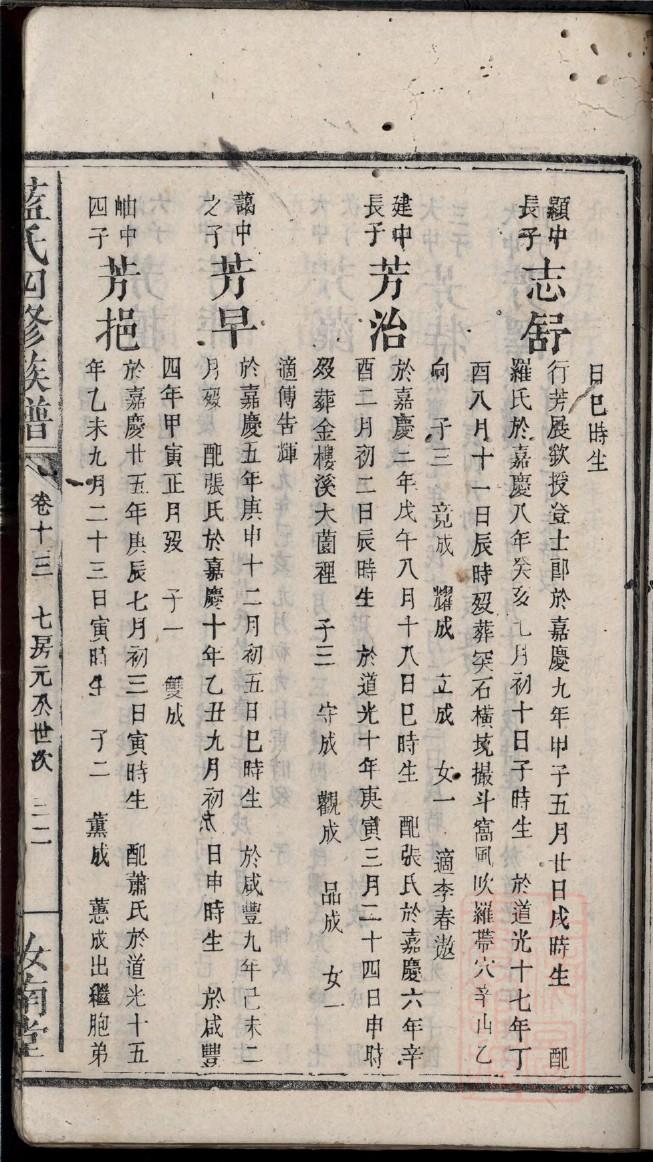 日巳時生
顯中長子 志舒
行芳展欽授登士郎於嘉慶九年甲子五月廿日戌時生 配
羅氏於嘉慶八年癸亥九月初十日子時生 於道光十七年丁
酉八月十一日辰時歿葬突石橫境撮斗窩風吹羅帶穴辛山乙
向 子三 竟成 耀成 立成 女一 適李春遨
建中長子 芳治
於嘉慶二年戊午八月十八日巳時生 配張氏於嘉慶六年辛
酉二月初二日辰時生 於道光十年庚寅三月二十四日申時
歿葬金樓溪大薗裡 子三 守成 觀成 品成 女一
適傅告輝
藹中之子 芳早
於嘉慶五年庚申十二月初五日巳時生 於咸豐九年己未二
月歿 配張氏於嘉慶十年乙丑九月初六日申時生 於咸豐
四年甲寅正月歿 子一 雙成
岫中四子 芳挹
於嘉慶廿五年庚辰七月初三日寅時生 配蕭氏於道光十五
年乙未九月二十三日寅時生 子二 薰成 蕙成出繼胞弟
藍氏四修族譜 卷十三 七房元丕世次 三二 汝南堂